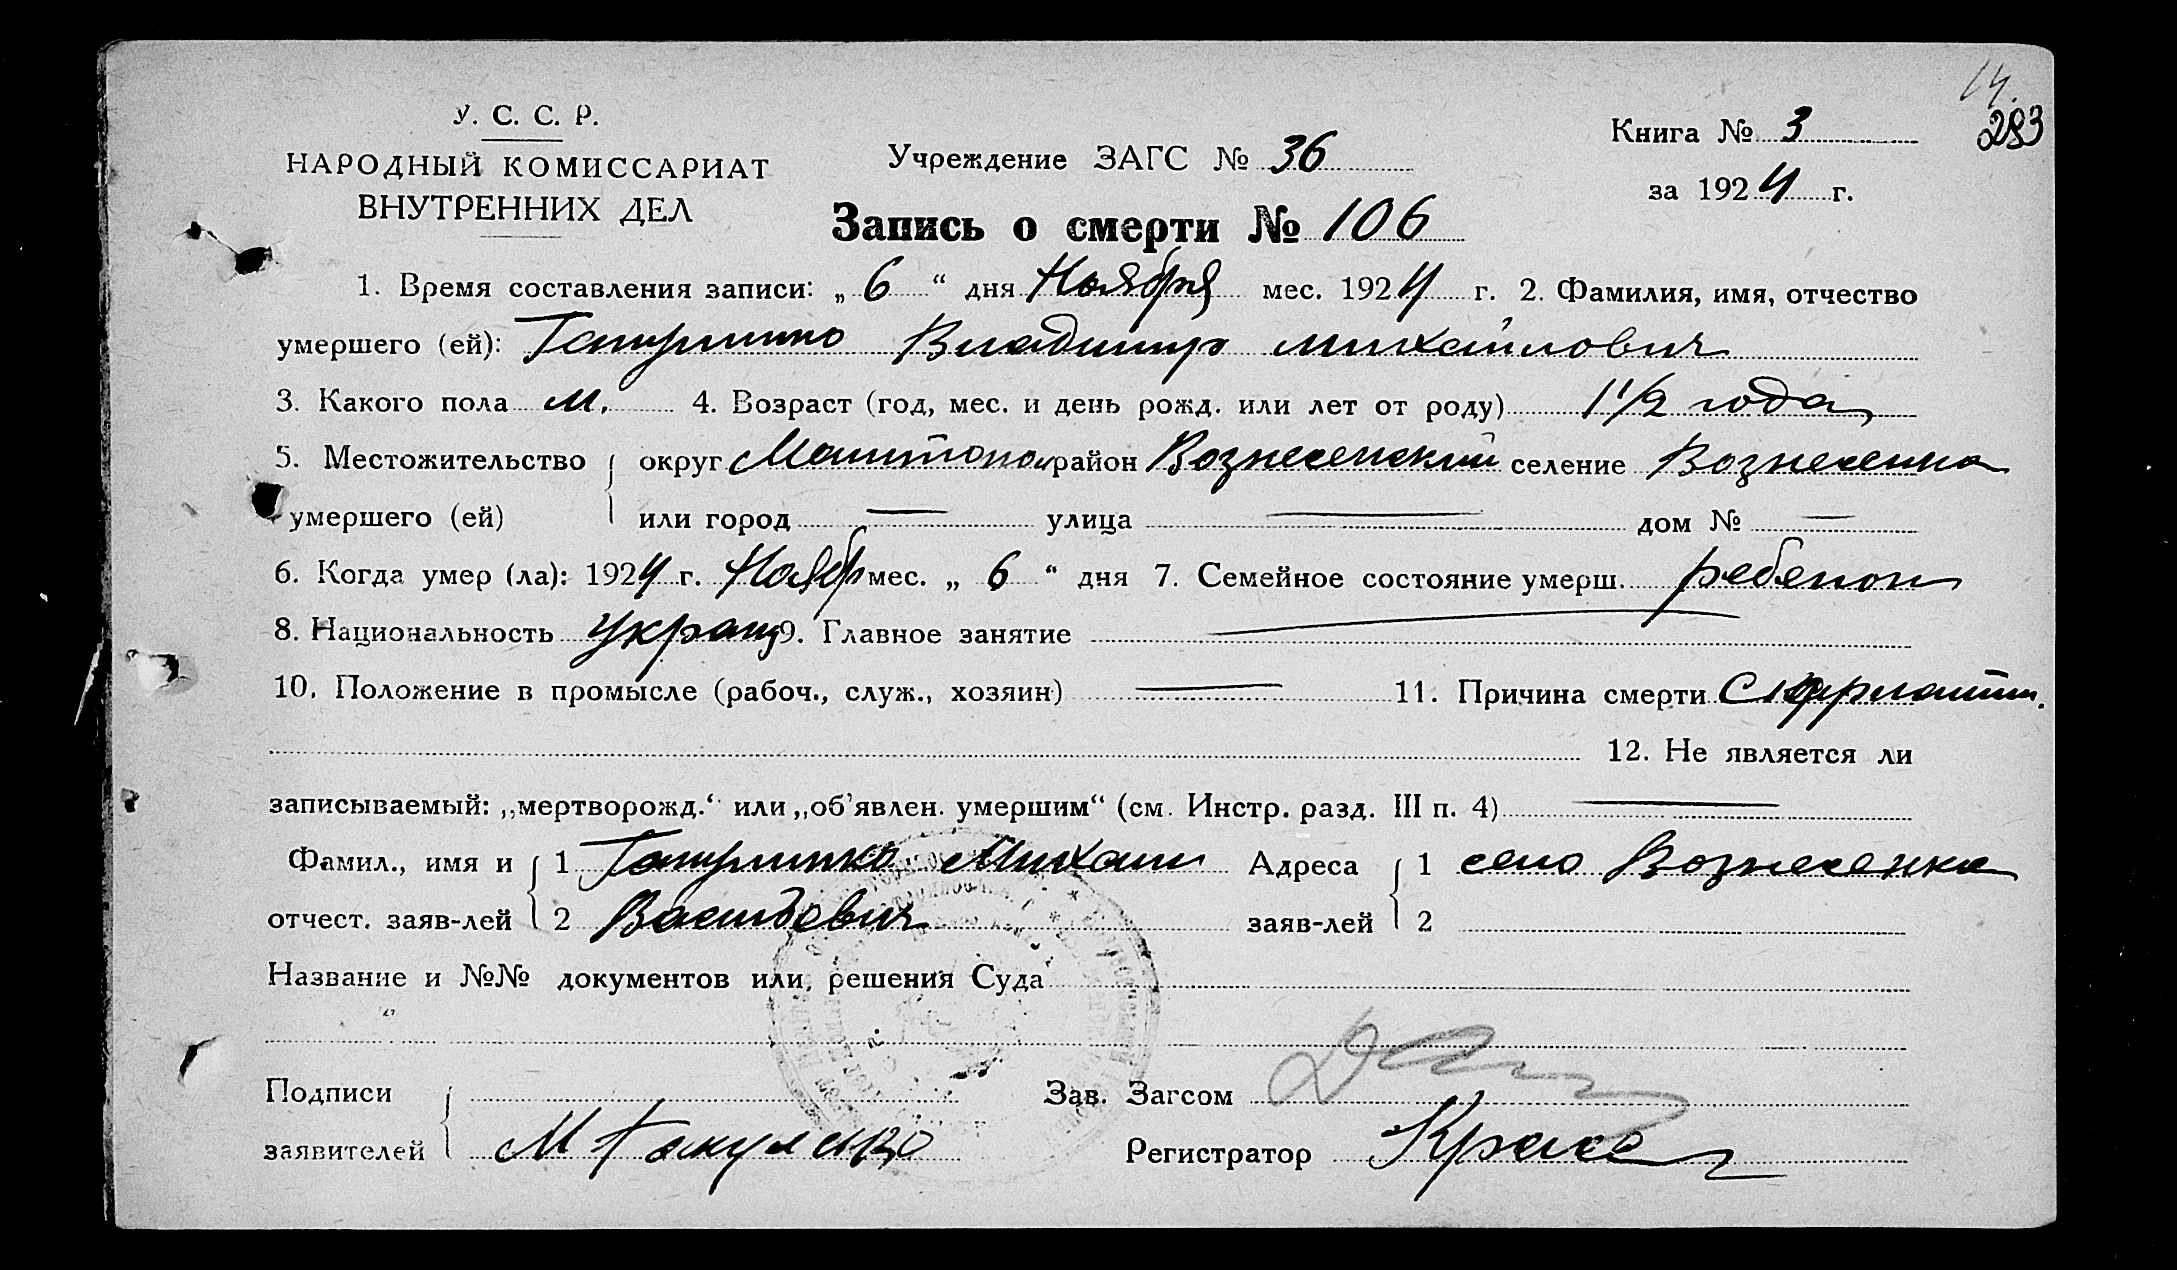 14.
283
У. С. С. Р.
НАРОДНЫЙ КОМИССАРИАТ
ВНУТРЕННИХ ДЕЛ
Учреждение ЗАГС № 36
Книга № 3
за 1924 г.
Запись о смерти № 106
1. Время составления записи: „ 6 “ дня Ноября мес. 1924 г. 2. Фамилия, имя, отчество
умершего (ей): Владимир михайлович
3. Какого пола м. 4. Возраст (год, мес. и день рожд. или лет от роду) 1 1/2 года
5. Местожительство округ район Вознесенский селение Вознесенка
умершего (ей) или город — улица — дом № —
6. Когда умер (ла): 1924 г. Ноябр мес. „ 6 “ дня 7. Семейное состояние умерш. ребенок
8. Национальность Украин 9. Главное занятие —
10. Положение в промысле (рабоч., служ., хозяин) — 11. Причина смерти Скарлатин.
12. Не является ли
записываемый: „мертворожд.“ или „об’явлен. умершим“ (см. Инстр. разд. III п. 4) —
Фамил., имя и 1 Михаил Адреса 1 село Вознесенка
отчест. заяв-лей 2 заяв-лей 2
Название и №№ документов или решения Суда
Подписи Зав. Загсом
заявителей М Регистратор